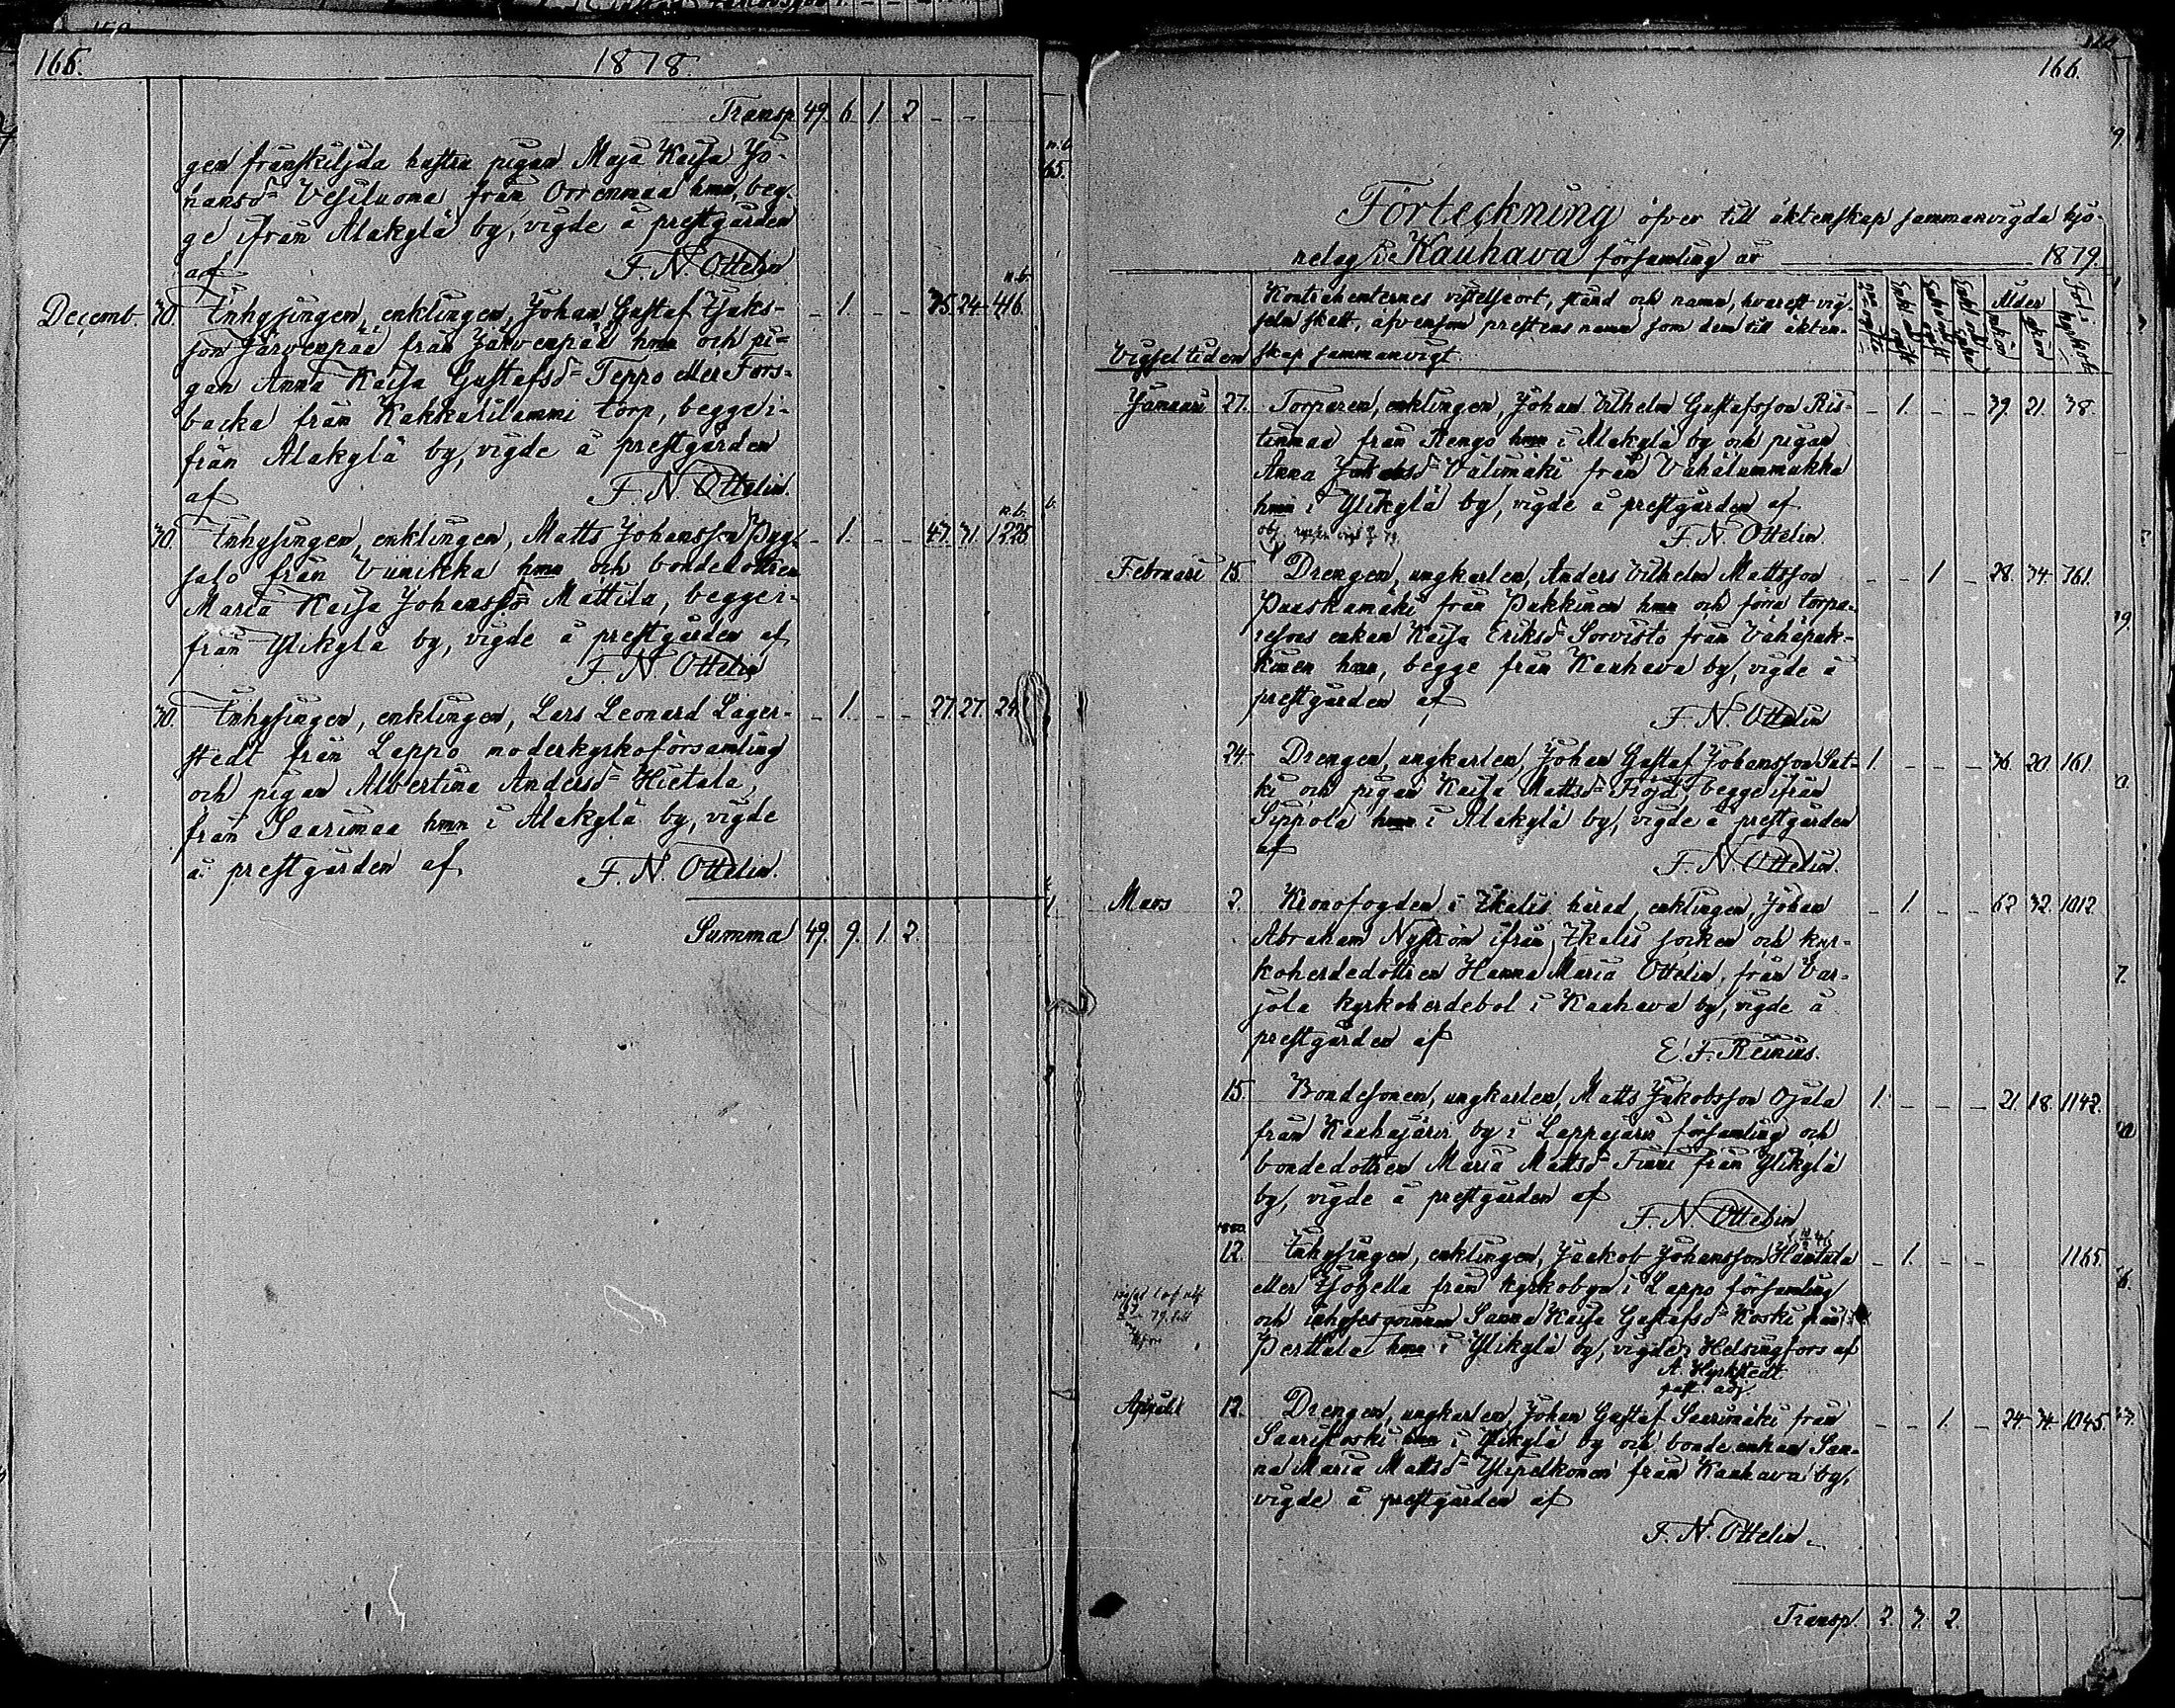 166.
1878.
Transp. 49. 6. 1. 2. – –
gen frånskiljda hustru pigan Maja Kaisa Jo-
hansd= Vesiluoma från Orrenmaa hmn, beg-
ge ifrån Alakylä by, vigde å prestgården
af F. N. Ottelin
n.b.
Decemb. 30. Inhysingen, enklingen, Johan Gustaf Isaks- – 1. – – 35. 24. 416.
son Järvenpää från Järvenpää hmn och pi=
gan Anna Kaisa Gustafsd= Teppo eller Fors=
backa från Kakkarilammi torp, begge i-
från Alakylä by, vigde å prestgården
af F. N. Ottelin.
n.b.
30. Inhysingen, enklingen, Matts Johansson Pyy- – 1. – – 47. 31. 1225
salo från Viinikka hmn och bondedottren
Maria Kaisa Johansd= Mattila, begge i-
från Ylikylä by, vigde å prestgården af
F. N. Ottelin
30. Inhysingen, enklingen, Lars Leonard Lager- – 1. – – 27. 27. 24
stedt från Lappo moderkyrkoförsamling
och pigan Albertina Andersd= Hietala,
från Saarimaa hmn i Alakylä by, vigde
å prestgården af F. N. Ottelin.
Summa 49. 9. 1. 2.
166.
Förteckning öfver till äktenskap sammanvigda hjo-
nelag i Kauhava församling år 1879.
Kontrahenternes vistelseort, stånd och namn, hvarest vig-
seln skett, äfvensom prestens namn som dem till äkten-
Vigseltiden skap sammanvigt.
Ålder
mankön
qkön
Januari 27. Torparen, enklingen, Johan Vilhelm Gustafsson Ris- – 1. – – 39. 21. 38.
tinmaa från Rengo hmn i Alakylä by och pigan
Anna Jakobsd= Välimäki från Vähälummukka
hmn i Ylikylä by, vigde å prestgården af
F. N. Ottelin.
Februari 15. Drengen, ungkarlen, Anders Vilhelm Mattsson – – 1 – 28. 34. 761.
Paaskamäki från Pukkinen hmn och förra torpa-
resons enkan Kaisa Eriksd= Sorvisto från Vähäpuk-
kinen hmn, begge från Kauhava by, vigde å
prestgården af
F. N. Ottelin
24. Drengen, ungkarlen, Johan Gustaf Johansson Sat= 1. – – – 36. 20. 161.
ki och pigan Kaisa Mattsd= Fröjd begge ifrån
Sippola hmn i Alakylä by, vigde å prestgården
af
F. N. Ottelin.
Mars 2. Kronofogden i Ikalis härad, enklingen Johan – 1. – – 62 32. 1012.
Abraham Nyström ifrån Ikalis socken och kyr-
koherdedottren Hanna Maria Ottelin, från Var-
jola kyrkoherdebol i Kauhava by, vigde å
prestgården af
E. F. Reinius.
15. Bondesonen, ungkarlen, Matts Jakobsson Ojala 1. – – – 21. 18. 1142.
från Kauhajärvi by i Lappajärvi församling och
bondedottren Maria Mattsd= Finni från Ylikylä
by, vigde å prestgården af
F. N. Ottelin
12. Inhysingen, enklingen, Jaakob Johansson Häntälä – 1. – – 1165.
eller Isohella från kyrkobyn i Lappo församling
och inhyseqvinnan Sanna Kaisa Gustafsd= Koski från
Perttula hmn i Ylikylä by, vigde i Helsingfors af
A. Hyrkstedt
past. adj.
Aprill 12. Drengen, ungkarlen, Johan Gustaf Saarimäki från – – 1. – 24. 34. 1045.
Saarikoski hmn i Ylikylä by och bonde enkan San-
na Maria Mattsd= Ylipelkonen från Kauhava by,
vigde å prestgården af
F. N. Ottelin
Transp. 2. 3. 2.